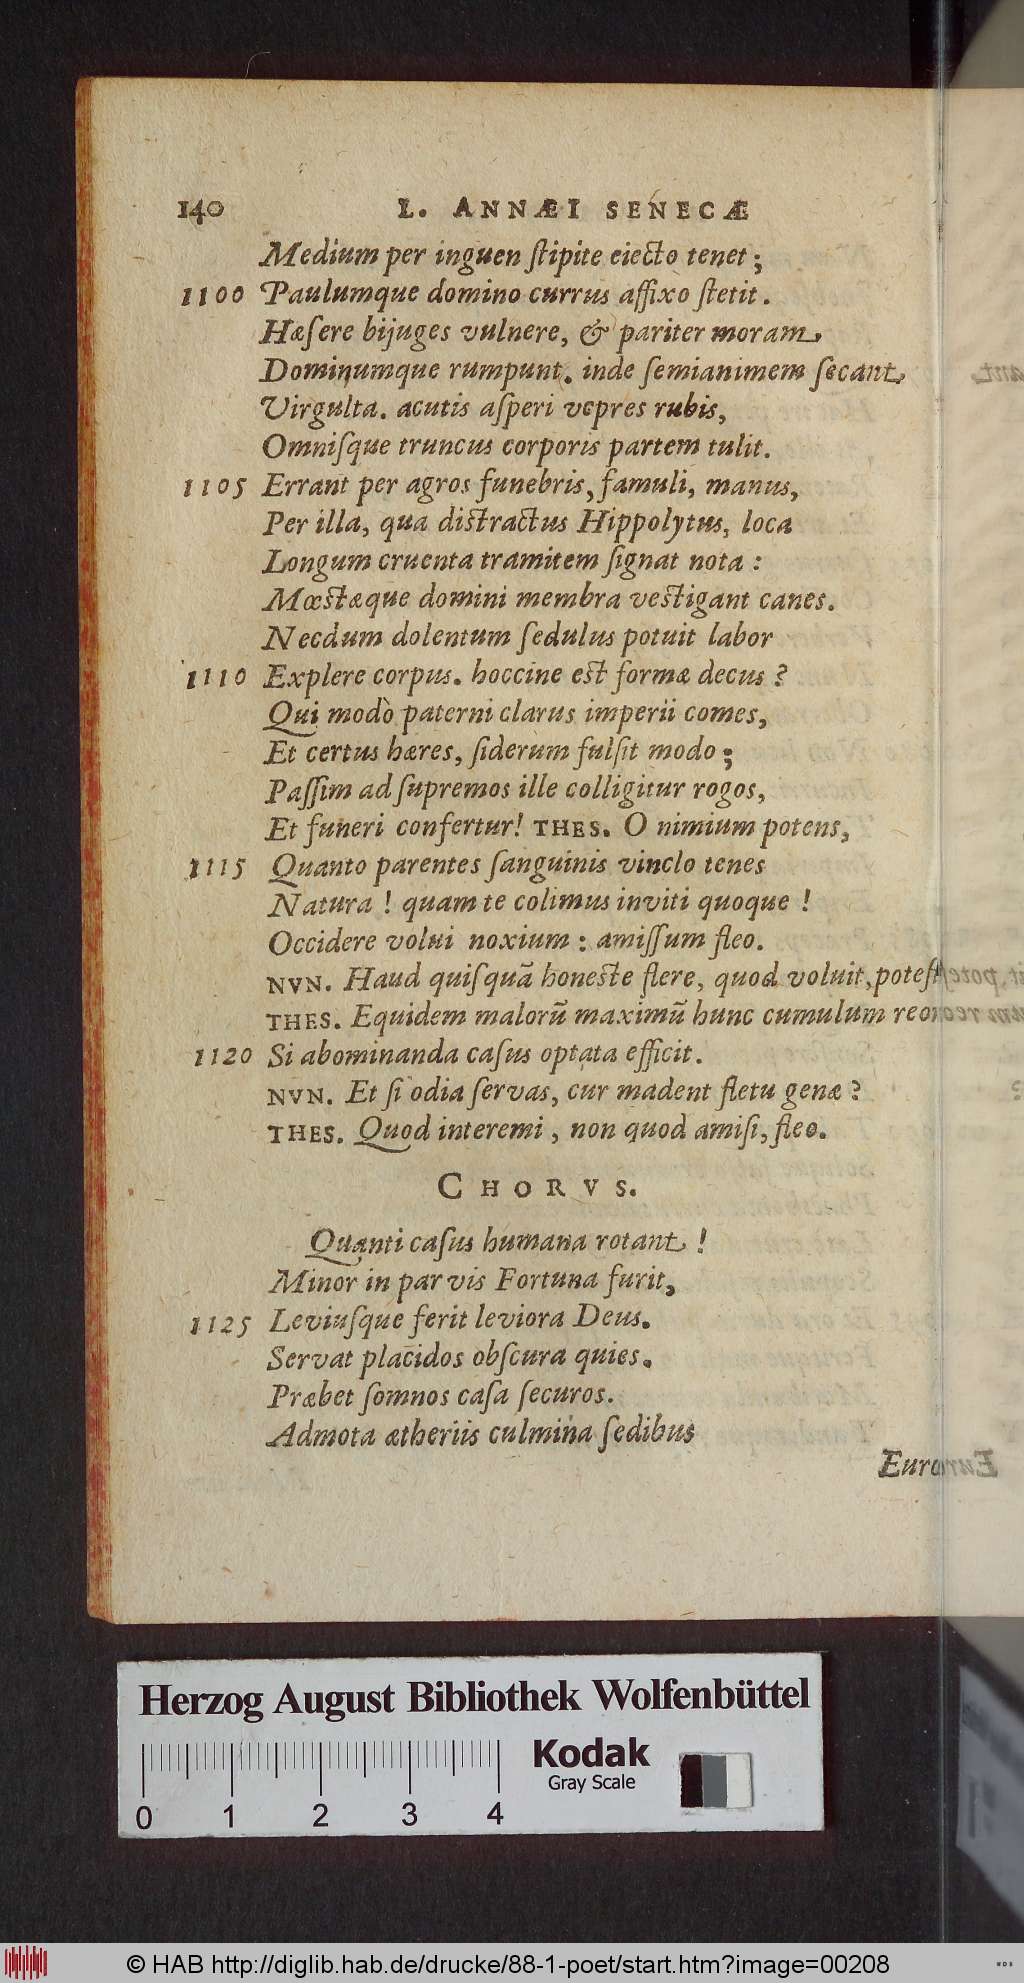 140 L. ANNÆI SENECÆ
Medium per inguen ſtipite eiecto tenet;
1100 Paulumque domino currus affixo ſtetit.
Hæſere bijuges vulnere, & pariter moram
Dominumque rumpunt. inde ſemianimem ſecant
Virgulta. acutis aſperi vepres rubis,
Omniſque truncus corporis partem tulit.
1105 Errant per agros funebris, famuli, manus,
Per illa, qua diſtractus Hippolytus, loca
Longum cruenta tramitem ſignat nota:
Mœſtæque domini membra veſtigant canes.
Necdum dolentum ſedulus potuit labor
1110 Explere corpus. hoccine eſt formæ decus?
Qui modò paterni clarus imperii comes,
Et certus hæres, ſiderum fulſit modo;
Paſſim ad ſupremos ille colligitur rogos,
Et funeri confertur! THES. O nimium potens,
1115 Quanto parentes ſanguinis vinclo tenes
Natura! quam te colimus inviti quoque!
Occidere volui noxium: amiſſum fleo.
NVN. Haud quiſquã honeſte flere, quod voluit, poteſt
THES. Equidem malorũ maximũ hunc cumulum reor
1120 Si abominanda caſus optata efficit.
NVN. Et ſi odia ſervas, cur madent fletu genæ?
THES. Quod interemi, non quod amiſi, fleo.
CHORVS.
Quanti caſus humana rotant!
Minor in parvis Fortuna furit,
1125 Leviuſque ferit leviora Deus.
Servat placidos obſcura quies.
Præbet ſomnos caſa ſecuros.
Admota ætheriis culmina ſedibus
Euro
Herzog August Bibliothek Wolfenbüttel
Kodak
Gray Scale
0 1 2 3 4
© HAB http://diglib.hab.de/drucke/88-1-poet/start.htm?image=00208